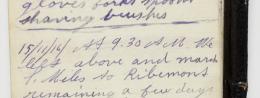 gloves forks spoons
shaving brushes
15/11/16/ At 9.30 A.M. We
left above and march
Miles to Ribemont
remaining a few days